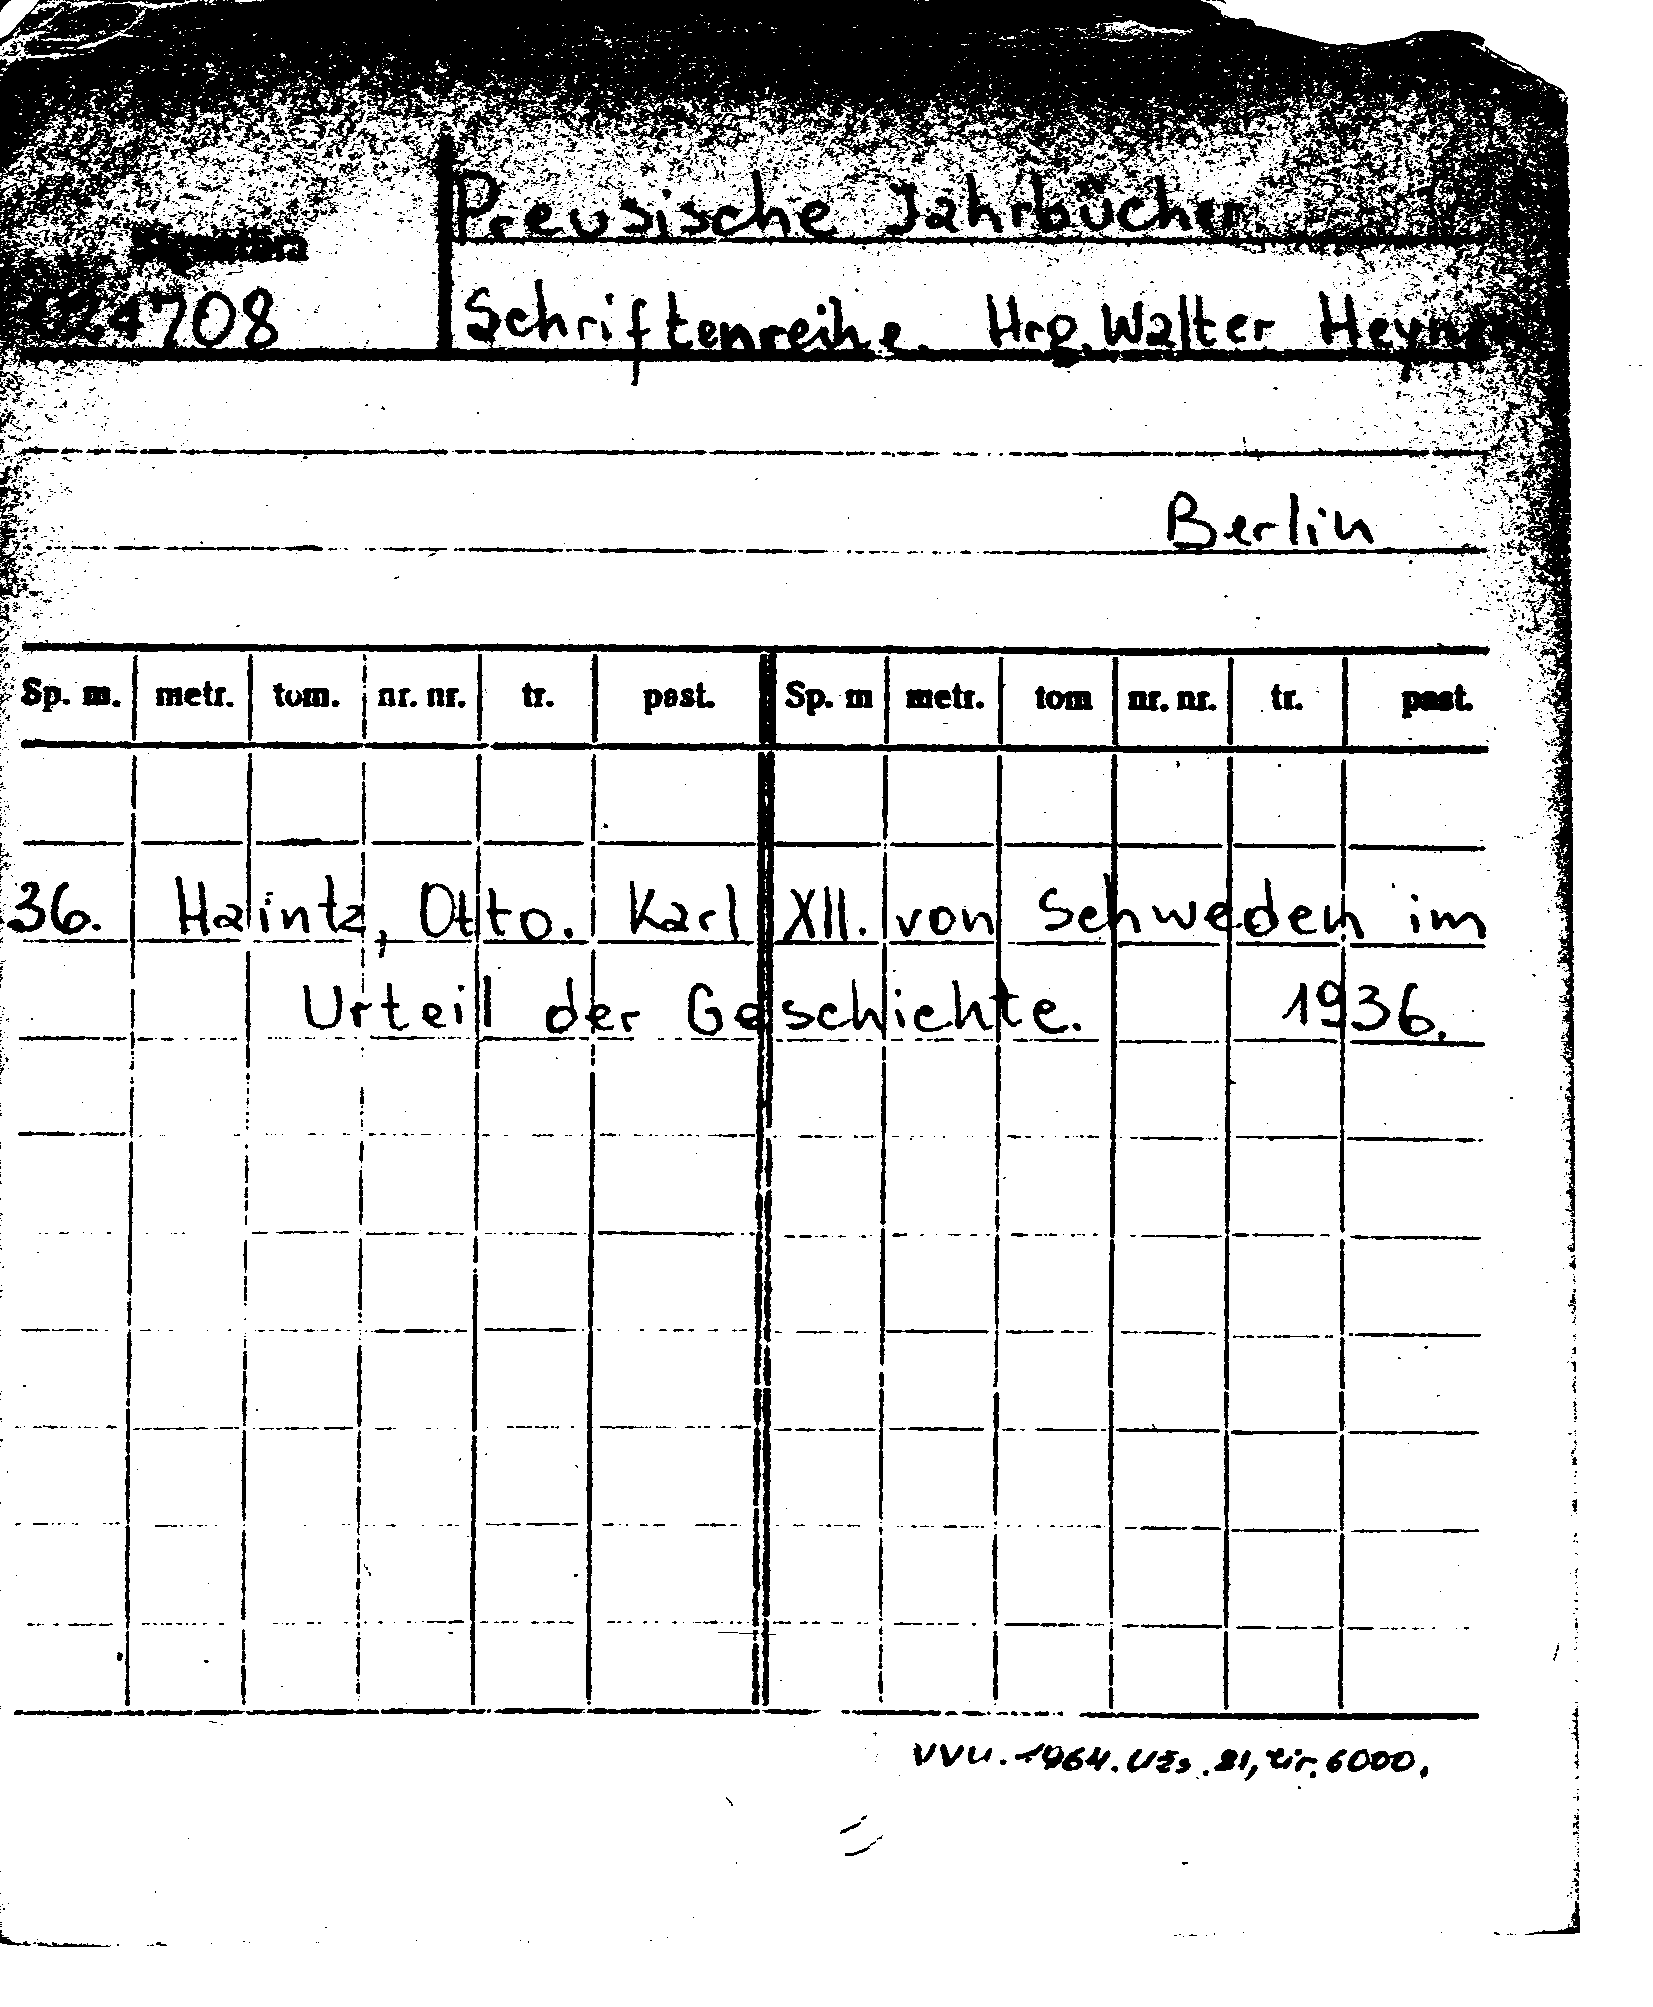 Preusische Jahrbücher
Signatūra
024708
Schriftenreihe. Hrg. Walter Heynen
Berlin
Sp. m. metr. tom. nr. nr. tr. past. Sp. m metr. tom nr. nr. tr. past.
36. Haintz, Otto. Karl XII. von Schweden im
Urteil der Geschichte. 1936.
VVU. 1964. Užs. 21, tir. 6000.